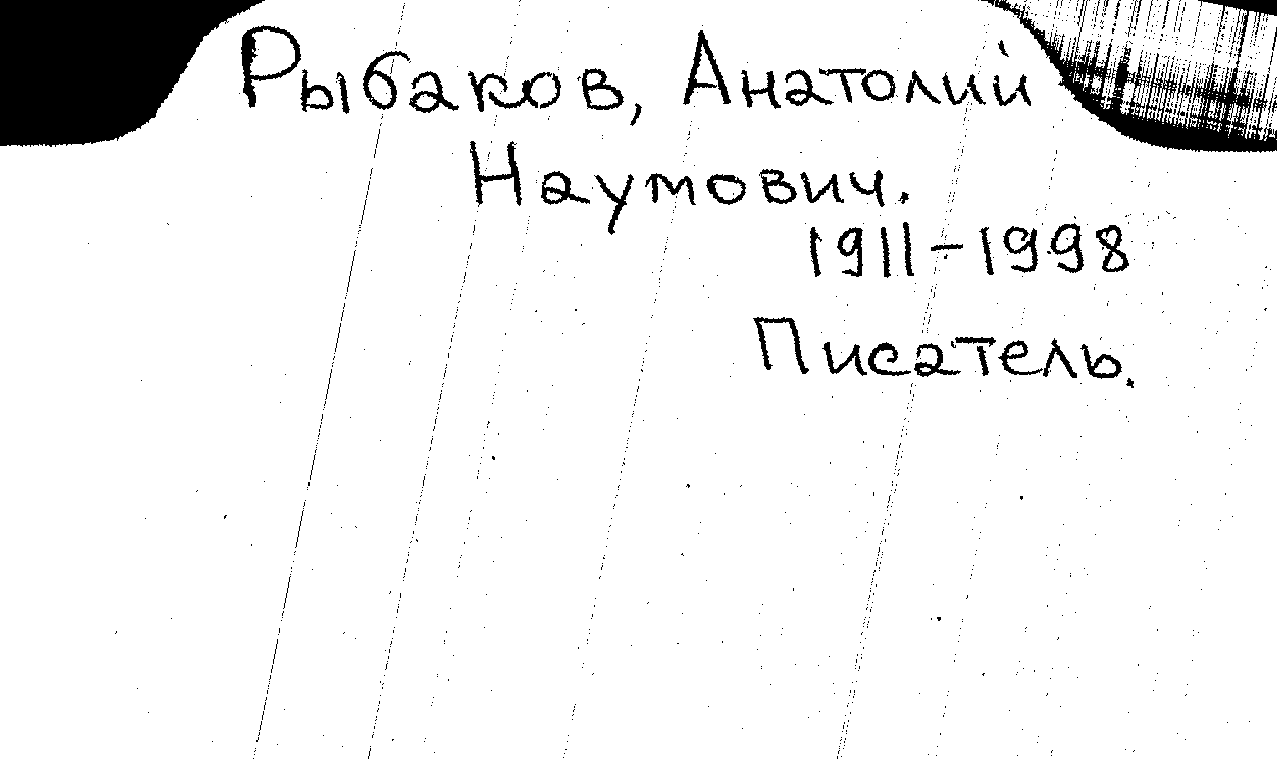 Рыбаков, Анатолий
Наумович.
1911-1998
Писатель.